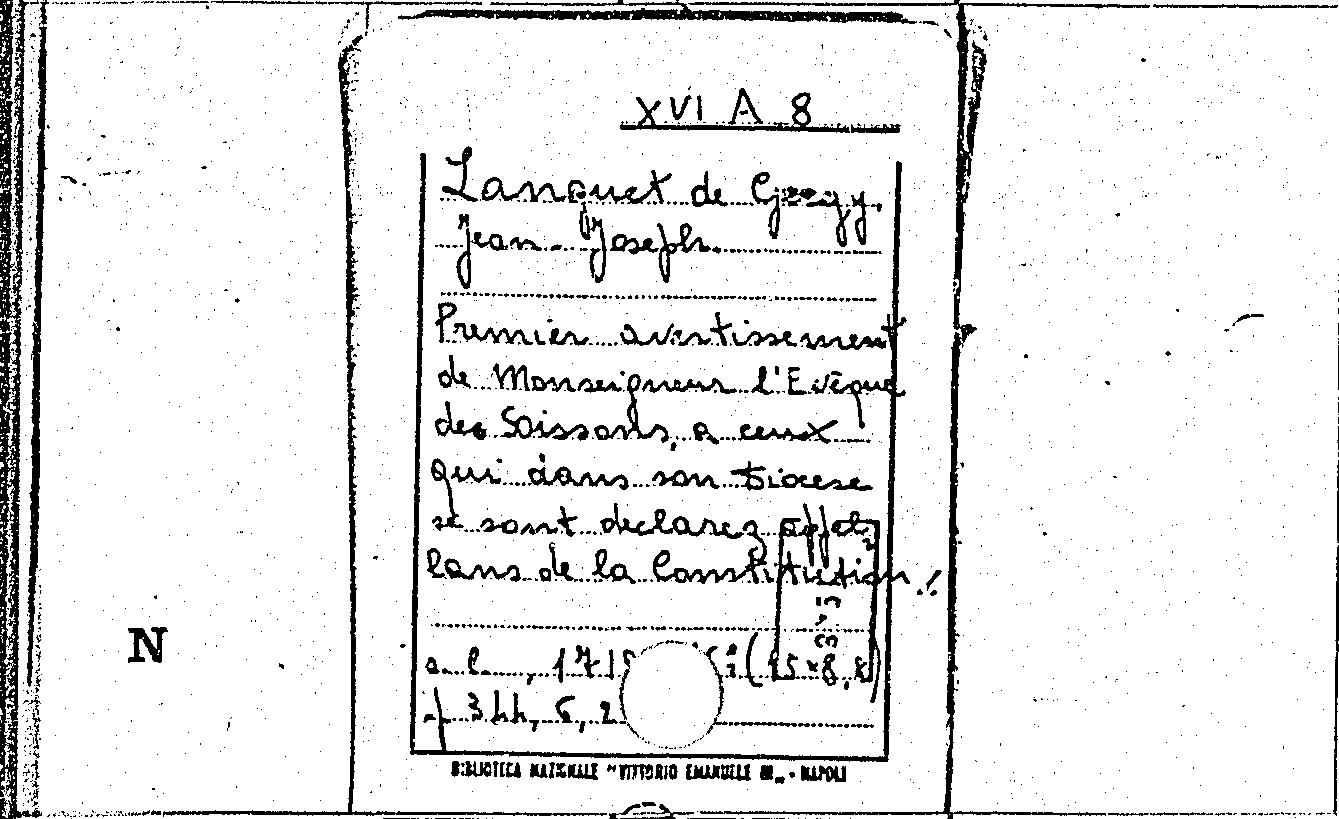 XVI A 8
Languet de Gergy,
Jean-Joseph.
Premier avertissement
de Monseigneur l'Evêque
de Soissons, a ceux
qui dans son Diocese
se sont declarez appel
lans de la Constitution.
s.l.,
p. 344, 6, 2
BIBLIOTECA NAZIONALE "VITTORIO EMANUELE III" - NAPOLI
N